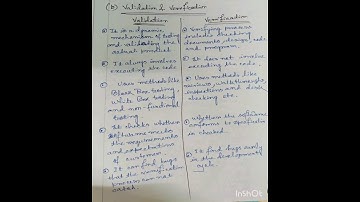 (b) Validation & Verification
Validation
(a) It is a dynamic
mechanism of testing
and validating the
actual product.
(b) It always involves
executing the code.
(c) Uses methods like
Black Box testing,
White Box testing
and non-functional
testing
It checks whether
meets
the requirements
and expectations
of customer.
(e) It can find bugs
that the verification
process can not
catch.
Verification
(a) Verifying process
includes checking
documents, design, code
and program.
(b) It does not involve
executing the code.
(c) Uses methods like
reviews, walkthroughs,
inspections and desk-
checking etc.
Whether the software
conforms to specification
is checked.
(e) It find bugs early
in the development
cycle.
InShOt